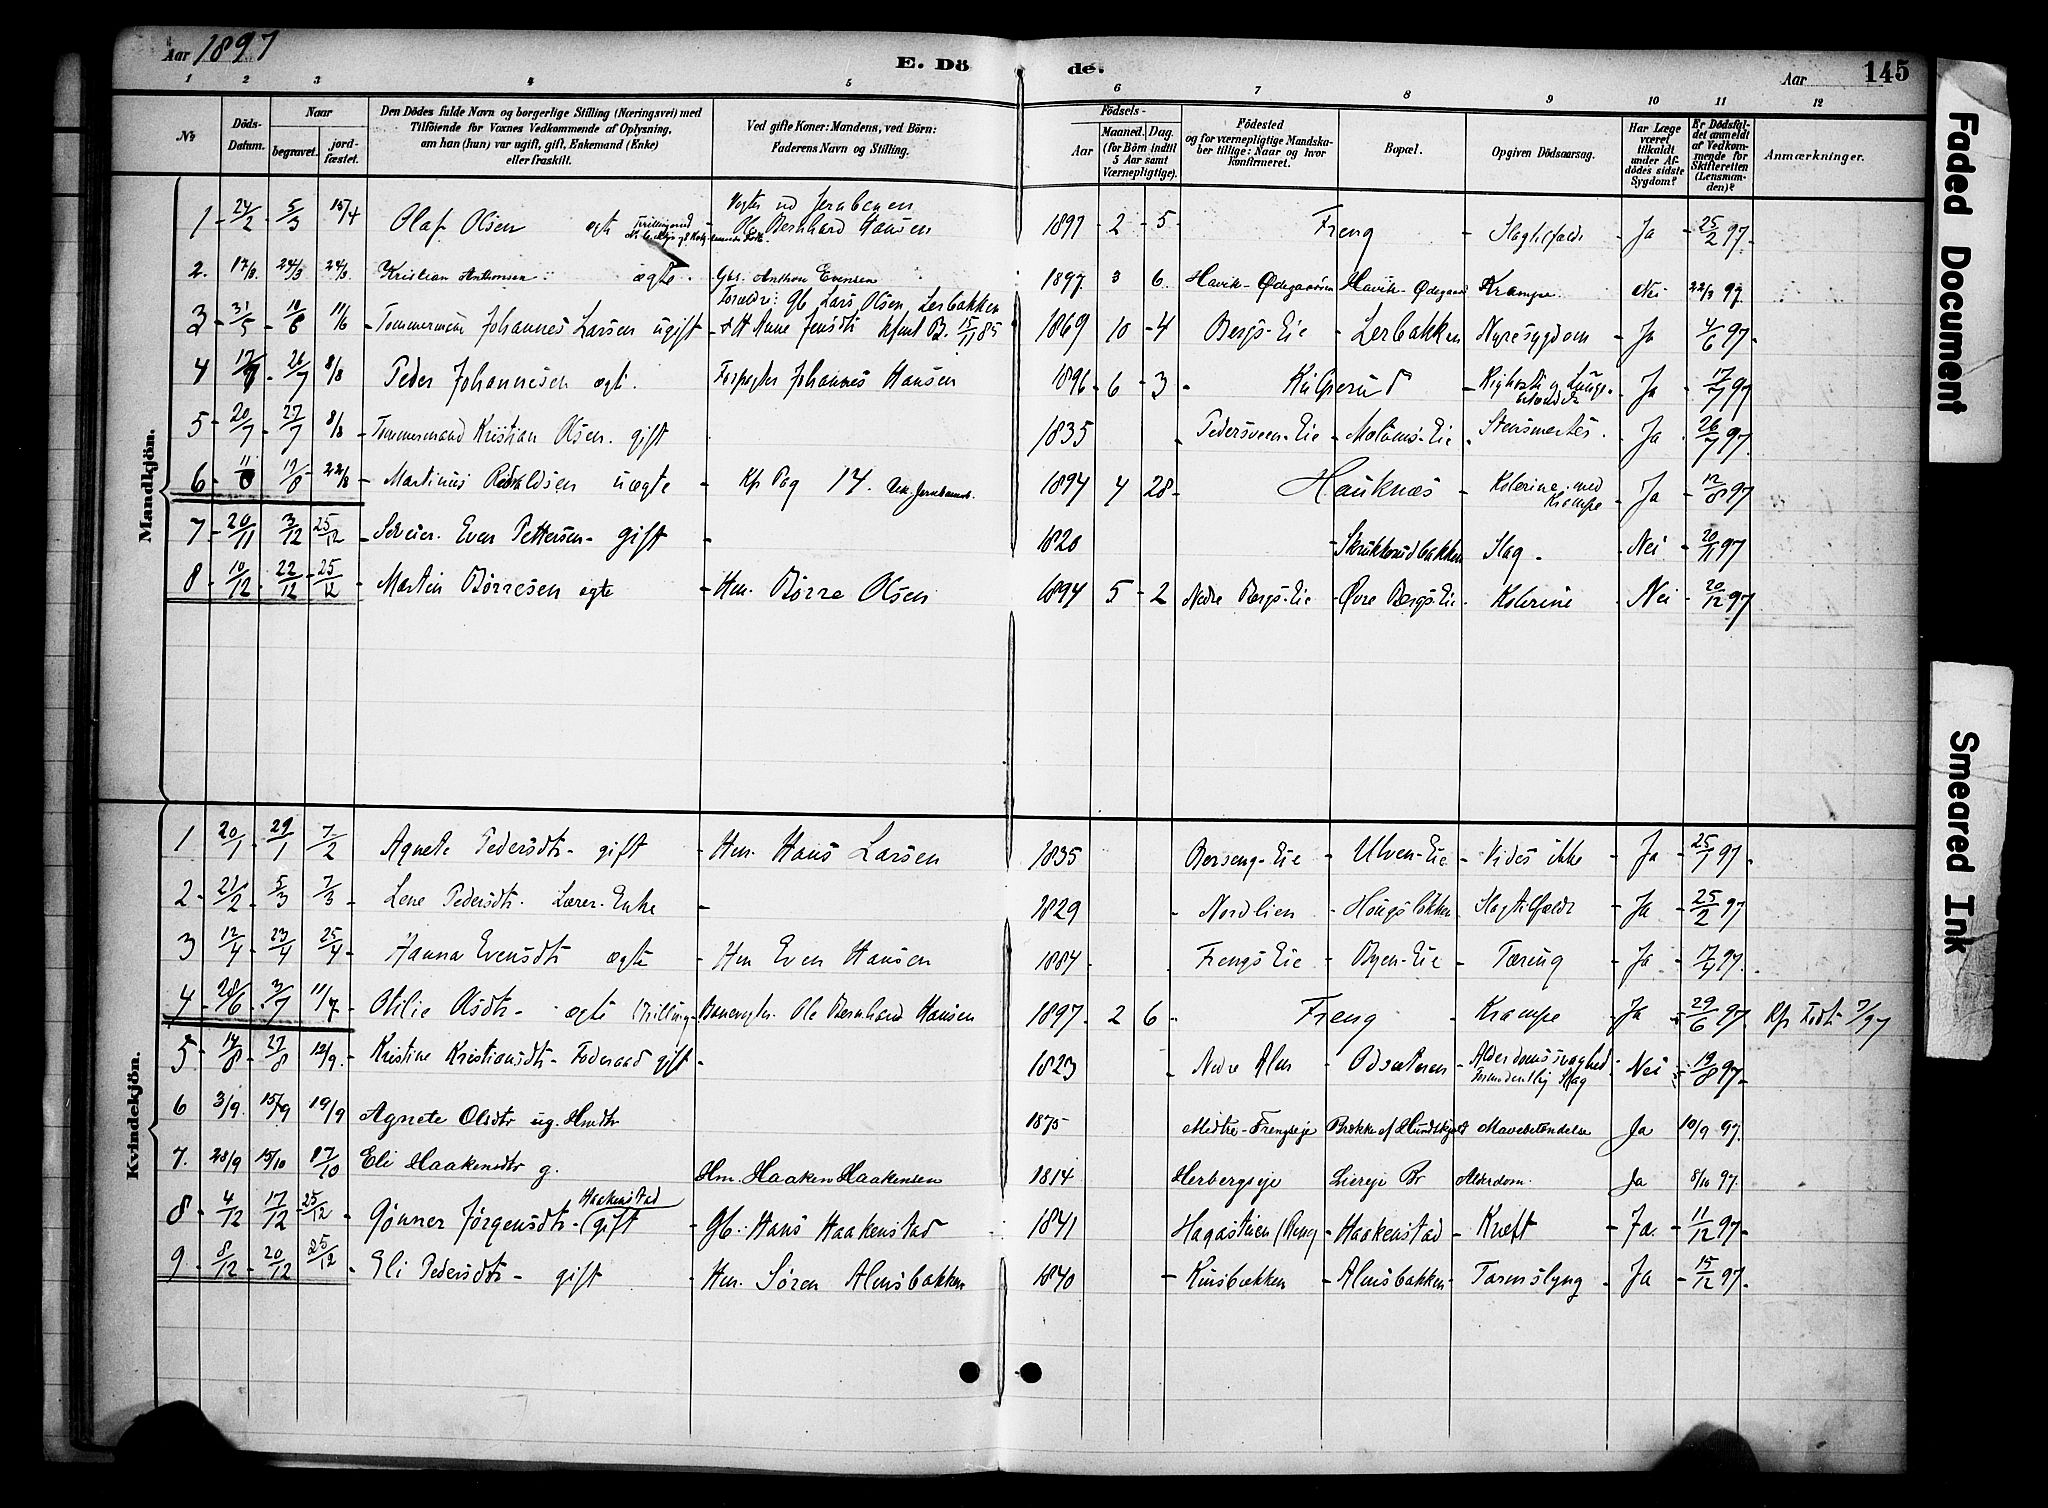 Aar 1897
E. Döde.
Aar
145
1 2 3 4 5 6 7 8 9 10 11 12
No
Döds-Datum.
Naar
begravet.
jordfæstet.
Den Dödes fulde Navn og borgerlige Stilling (Næringsvei) med
Tilföiende for Voxnes Vedkommende af Oplysning,
om han (hun) var ugift, gift, Enkemand (Enke)
eller fraskilt.
Ved gifte Koner: Mandens, ved Börn:
Faderens Navn og Stilling.
Födsels-
Aar
Maaned. Dag.
(for Börn indtil
5 Aar samt
Værnepligtige).
Födested
og for værnepligtige Mandska-
ber tillige: Naar og hvor
konfirmeret.
Bopæl.
Opgiven Dödsaarsag.
Har Læge
været
tilkaldt
under Af-
dödes sidste
Sygdom?
Er Dödsfal-
det anmeldt
af Vedkom-
mende for
Skifteretten
(Lensman-
den)?
Anmærkninger.
Mandkjön.
1 - 24/2 5/3 15/4 Olaf Olsen ægte Vogter ved Jernbanen Ole Bernhard Hansen 1897 - 2 - 5 Freng - Slagtilfælde - Ja - 25/2 97.
2. 17/3 24/3 24/3 Kristian Anthonsen ægte. Gbr. Anthon Evensen 1897. 3 6. Havik-Ødegaarden Havik-Ødegaard Krampe. Nei 22/3 97.
3 - 31/5 - 10/6 11/6 - Tømmermand Johannes Larsen ugift - Forældre: Gb Lars Olsen Lerbakken & H Anne Jensdtr Kfmt B. 15/11 85 1869 10 - 4 Bergs-Eie - Lerbakken Nyresygdom - Ja 4/6 97.
4 17/7 - 26/7 8/8 Peder Johannesen ægt. Forpagter Johannes Hansen 1896 - 6 - 3 - Kulsrud - Kighoste og Lunge- - Ja - 17/7 97
5 - 20/7 - 27/7 8/8 - Tømmermand Kristian Olsen. gift 1835 - Pedersveen-Eie - - Stensmerter. - Ja 26/7 97.
6 - 11/8 12/8 22/8 - Martinus uægte - Kfr Pag 14. 1894 4 28 - Hauknæs - Kolerine med Krampe - Ja - 12/8 97
7 - 20/11 3/12 25/12 - Selveier. Even Pettersen - gift - 1820 - Skrukkerudbakken Slag - - Nei - 20/11 97
8 - 10/12 - 22/12 - 25/12 - Martin Børresen ægte - Hm. Børre Olsen 1894 5 - 2 Nedre Bergs-Eie - Øvre Bergs-Eie - Kolerine - Nei - 20/12 97
Kvindekjön.
1 20/1 - 29/1 7/2 Agnete Pedersdtr - gift - Hm. Hans Larsen 1835 Berseng-Eie - Ulven-Eie - Vides ikke - Ja - 25/1 97.
2 - 21/2 5/3 7/3 - Lene Pedersdtr. Lærer-Enke - 1829 - Nordlien - Haugsløkken Slagtilfælde - Ja - 25/2 97
3 12/4 - 23/4 25/4 Hanna Evensdtr ægte - Hm Even Hansen 1884 - Frengs Eie - Byen-Eie - Tæring - Ja - 17/4 97.
4 - 28/6 3/7 11/7 - Otilie Olsdtr - ægte (Trilling - Banevogter. Ole Bernhard Hansen 1897 - 2 6 - Freng - Krampe Ja 29/6 97.
5 - 14/8 - 27/8 12/9 - Kristine Kristiansdtr - Føderaad gift - 1823 - Nedre Alm - Odsæteren - Alderdomssvaghed formodentlig Slag - Nei - 19/8 97 -
6 3/9. 15/9 19/9 Agnete Olsdtr ug. Hmdtr 1875 Midtre-Frengseje Mavebetændelse Ja 10/9 97.
7. 28/9 15/10 17/10 Eli Haakensdtr g. Hm. Haaken Haakensen 1814 Herbergseje Liereje Br Alderdom. Ja 8/10 97.
8 - 4/12 17/12 - 25/12 - Gønner Jørgensdtr - Haakenstad (gift - Gb: Hans Haakenstad 1841 Hagastuen (Ring - Haakenstad - Kræft - Ja. - 11/12 97 -
9 - 8/12 - 20/12 25/12 - Eli Pedersdtr - gift - Hm. Søren Almsbakken - 1840 - Kinsbakken - Almsbakken - Tarmslyng - Ja - 15/12 97 -
Faded Document
Smeared Ink